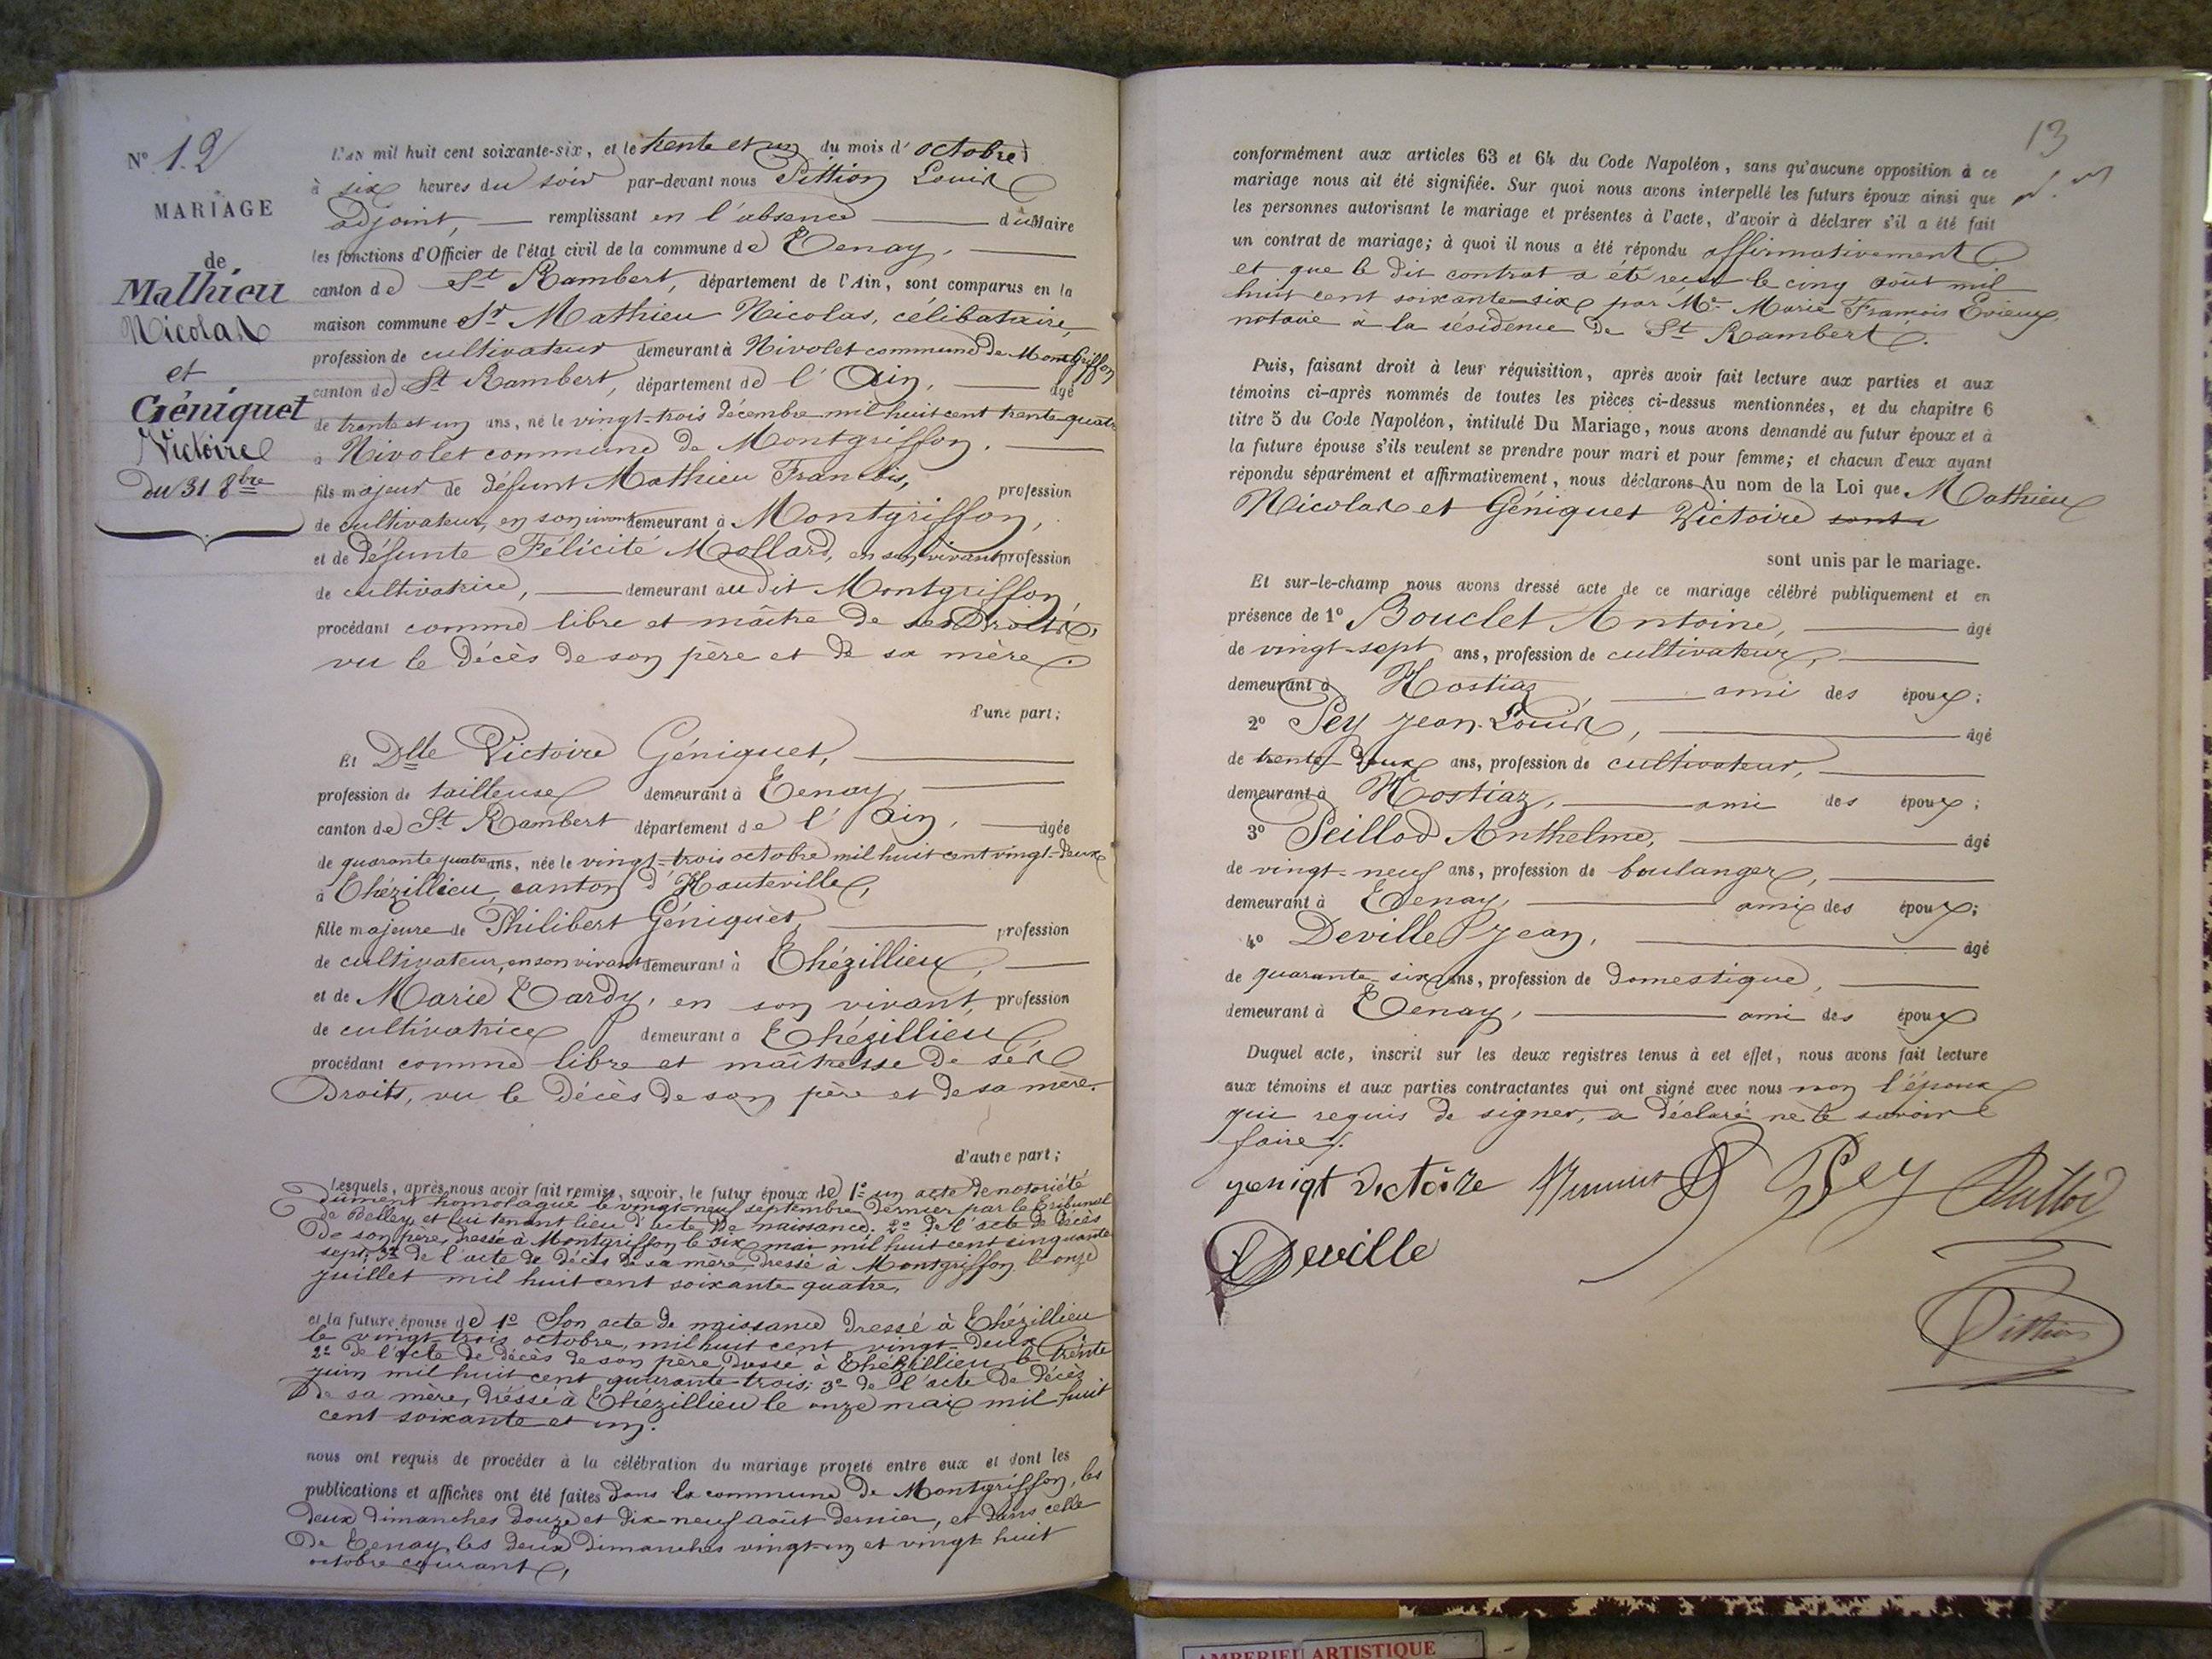 N° 12
MARIAGE
de
Mathieu
Nicolas
et
Géniquet
Victoire
du 31 8bre
L'AN mil huit cent soixante-six, et le trente et un du mois d'octobre
à six heures du soir par-devant nous Pittion Louis
adjoint, remplissant en l'absence du Maire
les fonctions d'Officier de l'état civil de la commune de Tenay,
canton de St Rambert, département de l'Ain, sont comparus en la
maison commune Sr Mathieu Nicolas, célibataire,
profession de cultivateur demeurant à Nivolet commune de Montgriffon
canton de St Rambert, département de l'Ain, âgé
de trente et un ans, né le vingt-trois décembre mil huit cent trente quatre
à Nivolet commune de Montgriffon.
fils majeur de défunt Mathieu François, profession
de cultivateur, en son vivant demeurant à Montgriffon,
et de défunte Félicité Mollard, en son vivant profession
de cultivatrice, demeurant au dit Montgriffon,
procédant comme libre et maître de ses Droits,
vu le décès de son père et de sa mère.
d'une part;
Et Dlle Victoire Géniquet,
profession de tailleuse demeurant à Tenay,
canton de St Rambert département de l'Ain, âgée
de quarante quatre ans, née le vingt-trois octobre mil huit cent vingt-deux
à Thézillieu, canton d'Hauteville,
fille majeure de Philibert Géniquet, profession
de cultivateur, en son vivant demeurant à Thézillieu,
et de Marie Tardy, en son vivant, profession
de cultivatrice demeurant à Thézillieu
procédant comme libre et maîtresse de ses
Droits, vu le décès de son père et de sa mère.
d'autre part;
Lesquels, après nous avoir fait remise, savoir, le futur époux de 1° un acte de notoriété
dûment homologué le vingt-neuf septembre dernier par le Tribunal
de Belley, et lui tenant lieu d'acte de naissance. 2° de l'acte de décès
de son père, dressé à Montgriffon le six mai mil huit cent cinquante
sept; 3° de l'acte de décès de sa mère, dressé à Montgriffon le onze
juillet mil huit cent soixante quatre,
et la future épouse de 1° Son acte de naissance dressé à Thézillieu
le vingt-trois octobre, mil huit cent vingt-deux
2° de l'acte de décès de son père, dressé à Thézillieu le trente
juin mil huit cent quarante-trois; 3° de l'acte de décès
de sa mère, dressé à Thézillieu le onze mai mil huit
cent soixante et un.
nous ont requis de procéder à la célébration du mariage projeté entre eux et dont les
publications et affiches ont été faites dans la commune de Montgriffon, les
deux dimanches douze et dix-neuf août dernier, et dans celle
de Tenay, les deux dimanches vingt-un et vingt huit
octobre courant,
13
conformément aux articles 63 et 64 du Code Napoléon, sans qu'aucune opposition à ce
mariage nous ait été signifiée. Sur quoi nous avons interpellé les futurs époux ainsi que
les personnes autorisant le mariage et présentes à l'acte, d'avoir à déclarer s'il a été fait
un contrat de mariage; à quoi il nous a été répondu affirmativement
et que le dit contrat a été reçu le cinq août mil
huit cent soixante-six par Me Marie François Evieux
notaire à la résidence de St Rambert.
Puis, faisant droit à leur réquisition, après avoir fait lecture aux parties et aux
témoins ci-après nommés de toutes les pièces ci-dessus mentionnées, et du chapitre 6
titre 5 du Code Napoléon, intitulé Du Mariage, nous avons demandé au futur époux et à
la future épouse s'ils veulent se prendre pour mari et pour femme; et chacun d'eux ayant
répondu séparément et affirmativement, nous déclarons Au nom de la Loi que Mathieu
Nicolas et Géniquet Victoire sont
sont unis par le mariage.
Et sur-le-champ nous avons dressé acte de ce mariage célébré publiquement et en
présence de 1° Bouclet Antoine, âgé
de vingt-sept ans, profession de cultivateur,
demeurant à Hostiaz, ami des époux;
2° Pey Jean-Louis, âgé
de trente-deux ans, profession de cultivateur,
demeurant à Hostiaz, ami des époux;
3° Peillod Anthelme, âgé
de vingt-neuf ans, profession de boulanger,
demeurant à Tenay, ami des époux;
4° Deville Jean, âgé
de quarante-six ans, profession de domestique,
demeurant à Tenay, ami des époux
Duquel acte, inscrit sur les deux registres tenus à cet effet, nous avons fait lecture
aux témoins et aux parties contractantes qui ont signé avec nous non l'époux
qui requis de signer, a déclaré ne le savoir
faire.
genigt victoire Pey Peillod
Deville
Pittion
AMBERIEU ARTISTIQUE